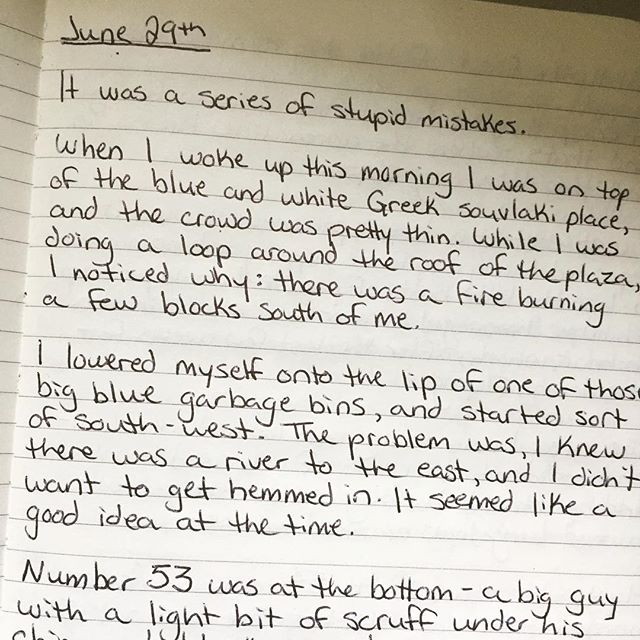 June 29th
It was a series of stupid mistakes.
When I woke up this morning I was on top
of the blue and white Greek souvlaki place,
and the crowd was pretty thin. While I was
doing a loop around the roof of the plaza,
I noticed why: there was a fire burning
a few blocks south of me.
I lowered myself onto the lip of one of thos
big blue garbage bins, and started sort
of south-west. The problem was, I knew
there was a river to the east, and I didn't
want to get hemmed in. It seemed like a
good idea at the time.
Number 53 was at the bottom - a big guy
with a light bit of scruff under his